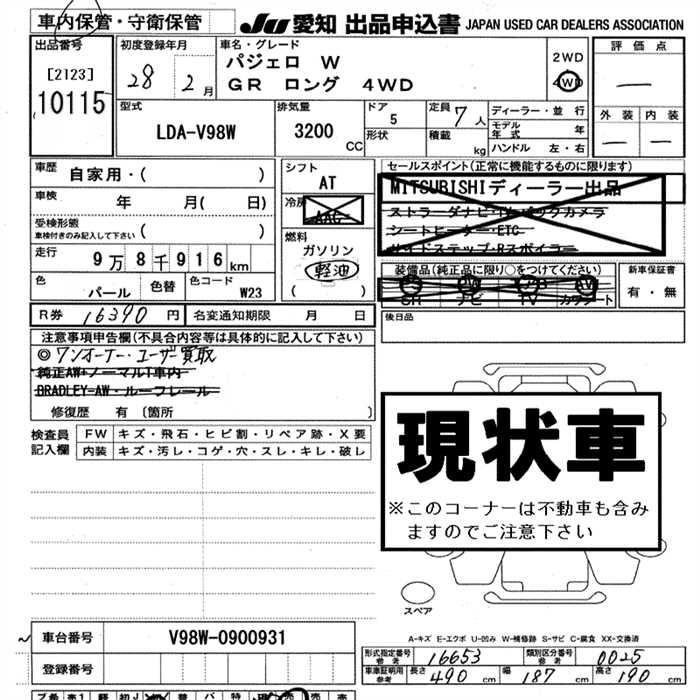 車内保管・守衛保管
JU 愛知 出品申込書 JAPAN USED CAR DEALERS ASSOCIATION
出品番号
[2123]
10115
初度登録年月
28 2 月
車名・グレード
パジェロ W
GR ロング 4WD
2WD
4WD
評価点
—
外装 内装
— —
型式
LDA-V98W
排気量
3200 CC
ドア
5
形状
定員 7 人
積載 kg
ディーラー・並行
モデル年式 年
ハンドル 左・右
車歴
自家用・( )
車検 年 月( 日)
受検形態
車検付きのみ記入して下さい ( )
走行 9万8千916km
色 パール 色替 色コード W23
シフト
AT
冷房
AAC
燃料
ガソリン
軽油
( )
セールスポイント(正常に機能するものに限ります)
MITSUBISHIディーラー出品
ストラーダナビ・TV・バックカメラ
シートヒーター・ETC
サイドステップ・Rスポイラー
装備品(純正品に限り○をつけてください)
SR ナビ TV カワシート
新車保証書
有・無
R券 16390 円 名変通知期限 月 日
後日品
注意事項申告欄(不具合内容等は具体的に記入して下さい)
◎ワンオーナー・ユーザー買取
純正AW+ノーマルT車内
BRADLEY-AW・ルーフレール
修復歴 有 (箇所 )
検査員記入欄
FW キズ・飛石・ヒビ割・リペア跡・X要
内装 キズ・汚レ・コゲ・穴・スレ・キレ・破レ
現状車
※このコーナーは不動車も含み
ますのでご注意下さい
スペア
A-キズ E-エクボ U-凹み W-補修跡 S-サビ C-腐食 XX-交換済
~ 車台番号 V98W-0900931
登録番号
形式指定番号 参考 16653 類別区分番号 参考 0025
車庫証明用 参考 長さ 490 cm 幅 187 cm 高さ 190 cm